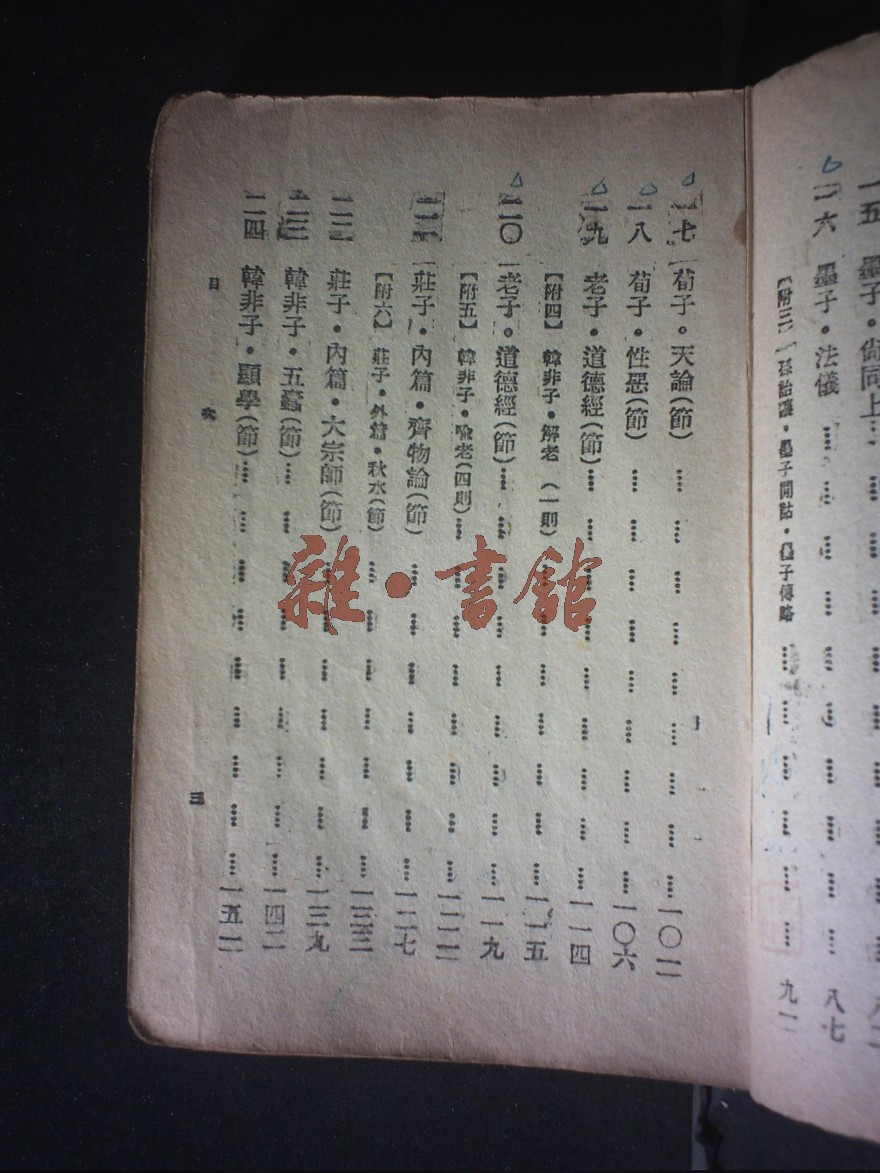 一五　墨子・尚同上
一六　墨子・法儀　八七
【附三】孫詒讓・墨子閒詁・墨子傳略　九一
一七　荀子・天論(節)
一八　荀子・性惡(節)　一〇六
一九　老子・道德經(節)　一一四
【附四】韓非子・解老(一則)　一一五
二〇　老子・道德經(節)　一一九
【附五】韓非子・喻老(四則)
二一　莊子・內篇・齊物論(節)　一二七
【附六】莊子・外篇・秋水(節)
二二　莊子・內篇・大宗師(節)　一三九
二三　韓非子・五蠹(節)　一四二
二四　韓非子・顯學(節)
目　次　三
雜・書館